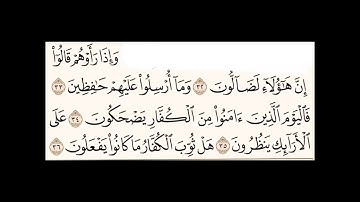 وَإِذَا رَأَوْهُمْ قَالُوٓا۟
إِنَّ هَـٰٓؤُلَآءِ لَضَآلُّونَ ٣٢ وَمَآ أُرْسِلُوا۟ عَلَيْهِمْ حَـٰفِظِينَ ٣٣
فَٱلْيَوْمَ ٱلَّذِينَ ءَامَنُوا۟ مِنَ ٱلْكُفَّارِ يَضْحَكُونَ ٣٤ عَلَى
ٱلْأَرَآئِكِ يَنظُرُونَ ٣٥ هَلْ ثُوِّبَ ٱلْكُفَّارُ مَا كَانُوا۟ يَفْعَلُونَ ٣٦